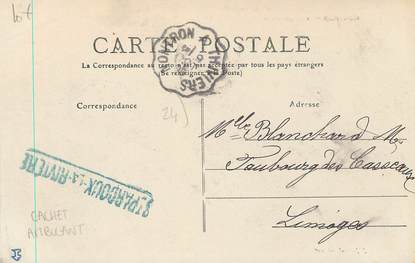 lot
CARTE POSTALE
La Correspondance au recto n'est pas acceptée par tous les pays étrangers
(Se renseigner à la Poste)
NONTRON A THIVIERS
Correspondance
Adresse
24)
Melle Blanchard M.
Faubourg des Casseaux
Limoges
ST PARDOUX-LA-RIVIÈRE
CACHET
AMBULANT